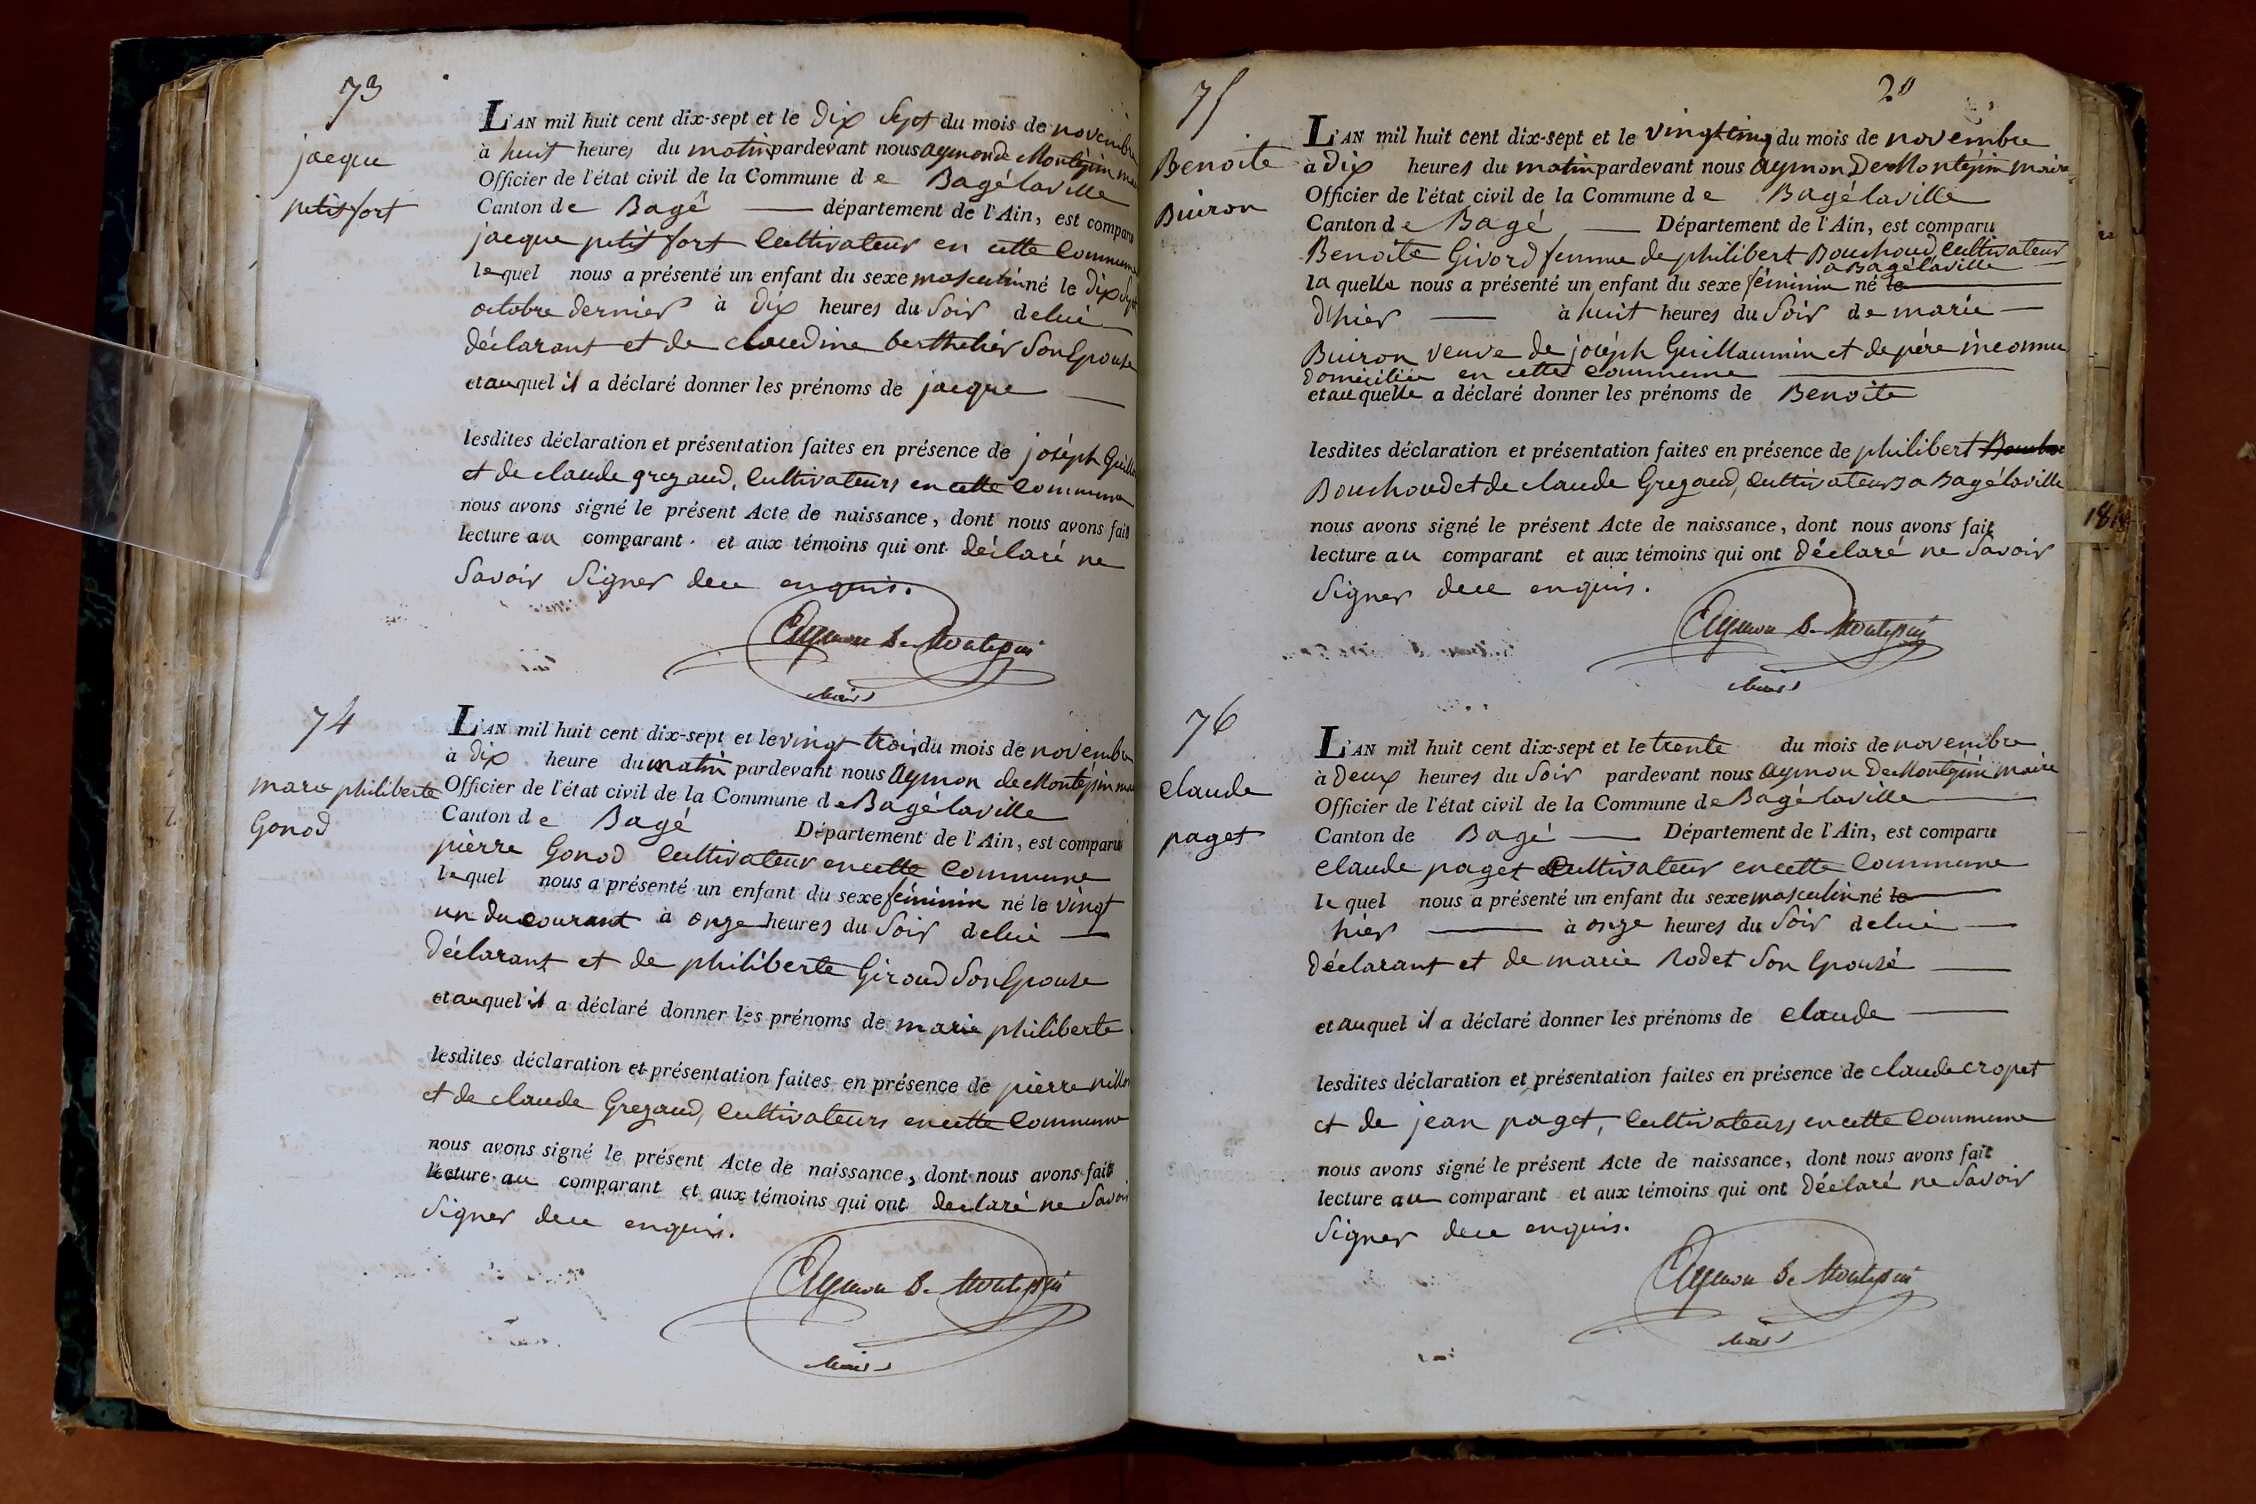 73
jacque
petitfort
L'AN mil huit cent dix-sept et le dix Sept du mois de novembre
à huit heures du matin pardevant nous aymon de Montépin
Officier de l'état civil de la Commune de Bagélaville
Canton de Bagé département de l'Ain, est comparu
jacque petit fort Cultivateur en cette Commune
lequel nous a présenté un enfant du sexe masculin né le dix Sept
octobre dernier à dix heures du Soir de lui
déclarant et de claudine berthelier Son Epouse
et auquel il a déclaré donner les prénoms de jacque
lesdites déclaration et présentation faites en présence de joséph
et de claude gregaud, Cultivateurs en cette Commune
nous avons signé le présent Acte de naissance, dont nous avons fait
lecture au comparant et aux témoins qui ont déclaré ne
Savoir Signer de ce enquis.
Aymon De Montepin
Maire
74
marie philiberte
Gonod
L'AN mil huit cent dix-sept et le vingt trois du mois de novembre
à dix heure du matin pardevant nous Aymon de Montépin
Officier de l'état civil de la Commune de Bagélaville
Canton de Bagé Département de l'Ain, est comparu
pierre Gonod Cultivateur en cette Commune
lequel nous a présenté un enfant du sexe féminin né le vingt
un du courant à onze heures du Soir de lui
déclarant et de philiberte Giroud Son Epouse
et auquel il a déclaré donner les prénoms de marie philiberte
lesdites déclaration et présentation faites en présence de pierre
et de claude Gregaud, Cultivateurs en cette Commune
nous avons signé le présent Acte de naissance, dont nous avons fait
lecture au comparant et aux témoins qui ont declaré ne Savoir
Signer de ce enquis.
Aymon De Montepin
Maire
20
75
Benoite
Buiron
L'AN mil huit cent dix-sept et le vingt cinq du mois de novembre
à dix heures du matin pardevant nous Aymon De Montépin maire
Officier de l'état civil de la Commune de Bagélaville
Canton de Bagé Département de l'Ain, est comparu
Benoite Givord femme de philibert Bouchoud Cultivateur
a Bagélaville
la quelle nous a présenté un enfant du sexe féminin né le
d'hier à huit heures du Soir de marie
Buiron veuve de joséph Guillaumin et de père inconnu
domiciliée en cette commune
et auquelle a déclaré donner les prénoms de Benoite
lesdites déclaration et présentation faites en présence de philibert
Bouchoud et de claude Gregaud, Cultivateurs a Bagélaville
nous avons signé le présent Acte de naissance, dont nous avons fait
lecture au comparant et aux témoins qui ont déclaré ne Savoir
Signer de ce enquis.
Aymon De Montepin
Maire
76
claude
paget
L'AN mil huit cent dix-sept et le trente du mois de novembre
à deux heures du Soir pardevant nous Aymon De Montépin maire
Officier de l'état civil de la Commune de Bagélaville
Canton de Bagé Département de l'Ain, est comparu
claude paget Cultivateur en cette Commune
lequel nous a présenté un enfant du sexe masculin né le
hier à onze heures du Soir de lui
déclarant et de marie Rodet Son Epouse
et auquel il a déclaré donner les prénoms de claude
lesdites déclaration et présentation faites en présence de claude cropet
et de jean paget, Cultivateurs en cette Commune
nous avons signé le présent Acte de naissance, dont nous avons fait
lecture au comparant et aux témoins qui ont déclaré ne Savoir
Signer de ce enquis.
Aymon De Montepin
Maire